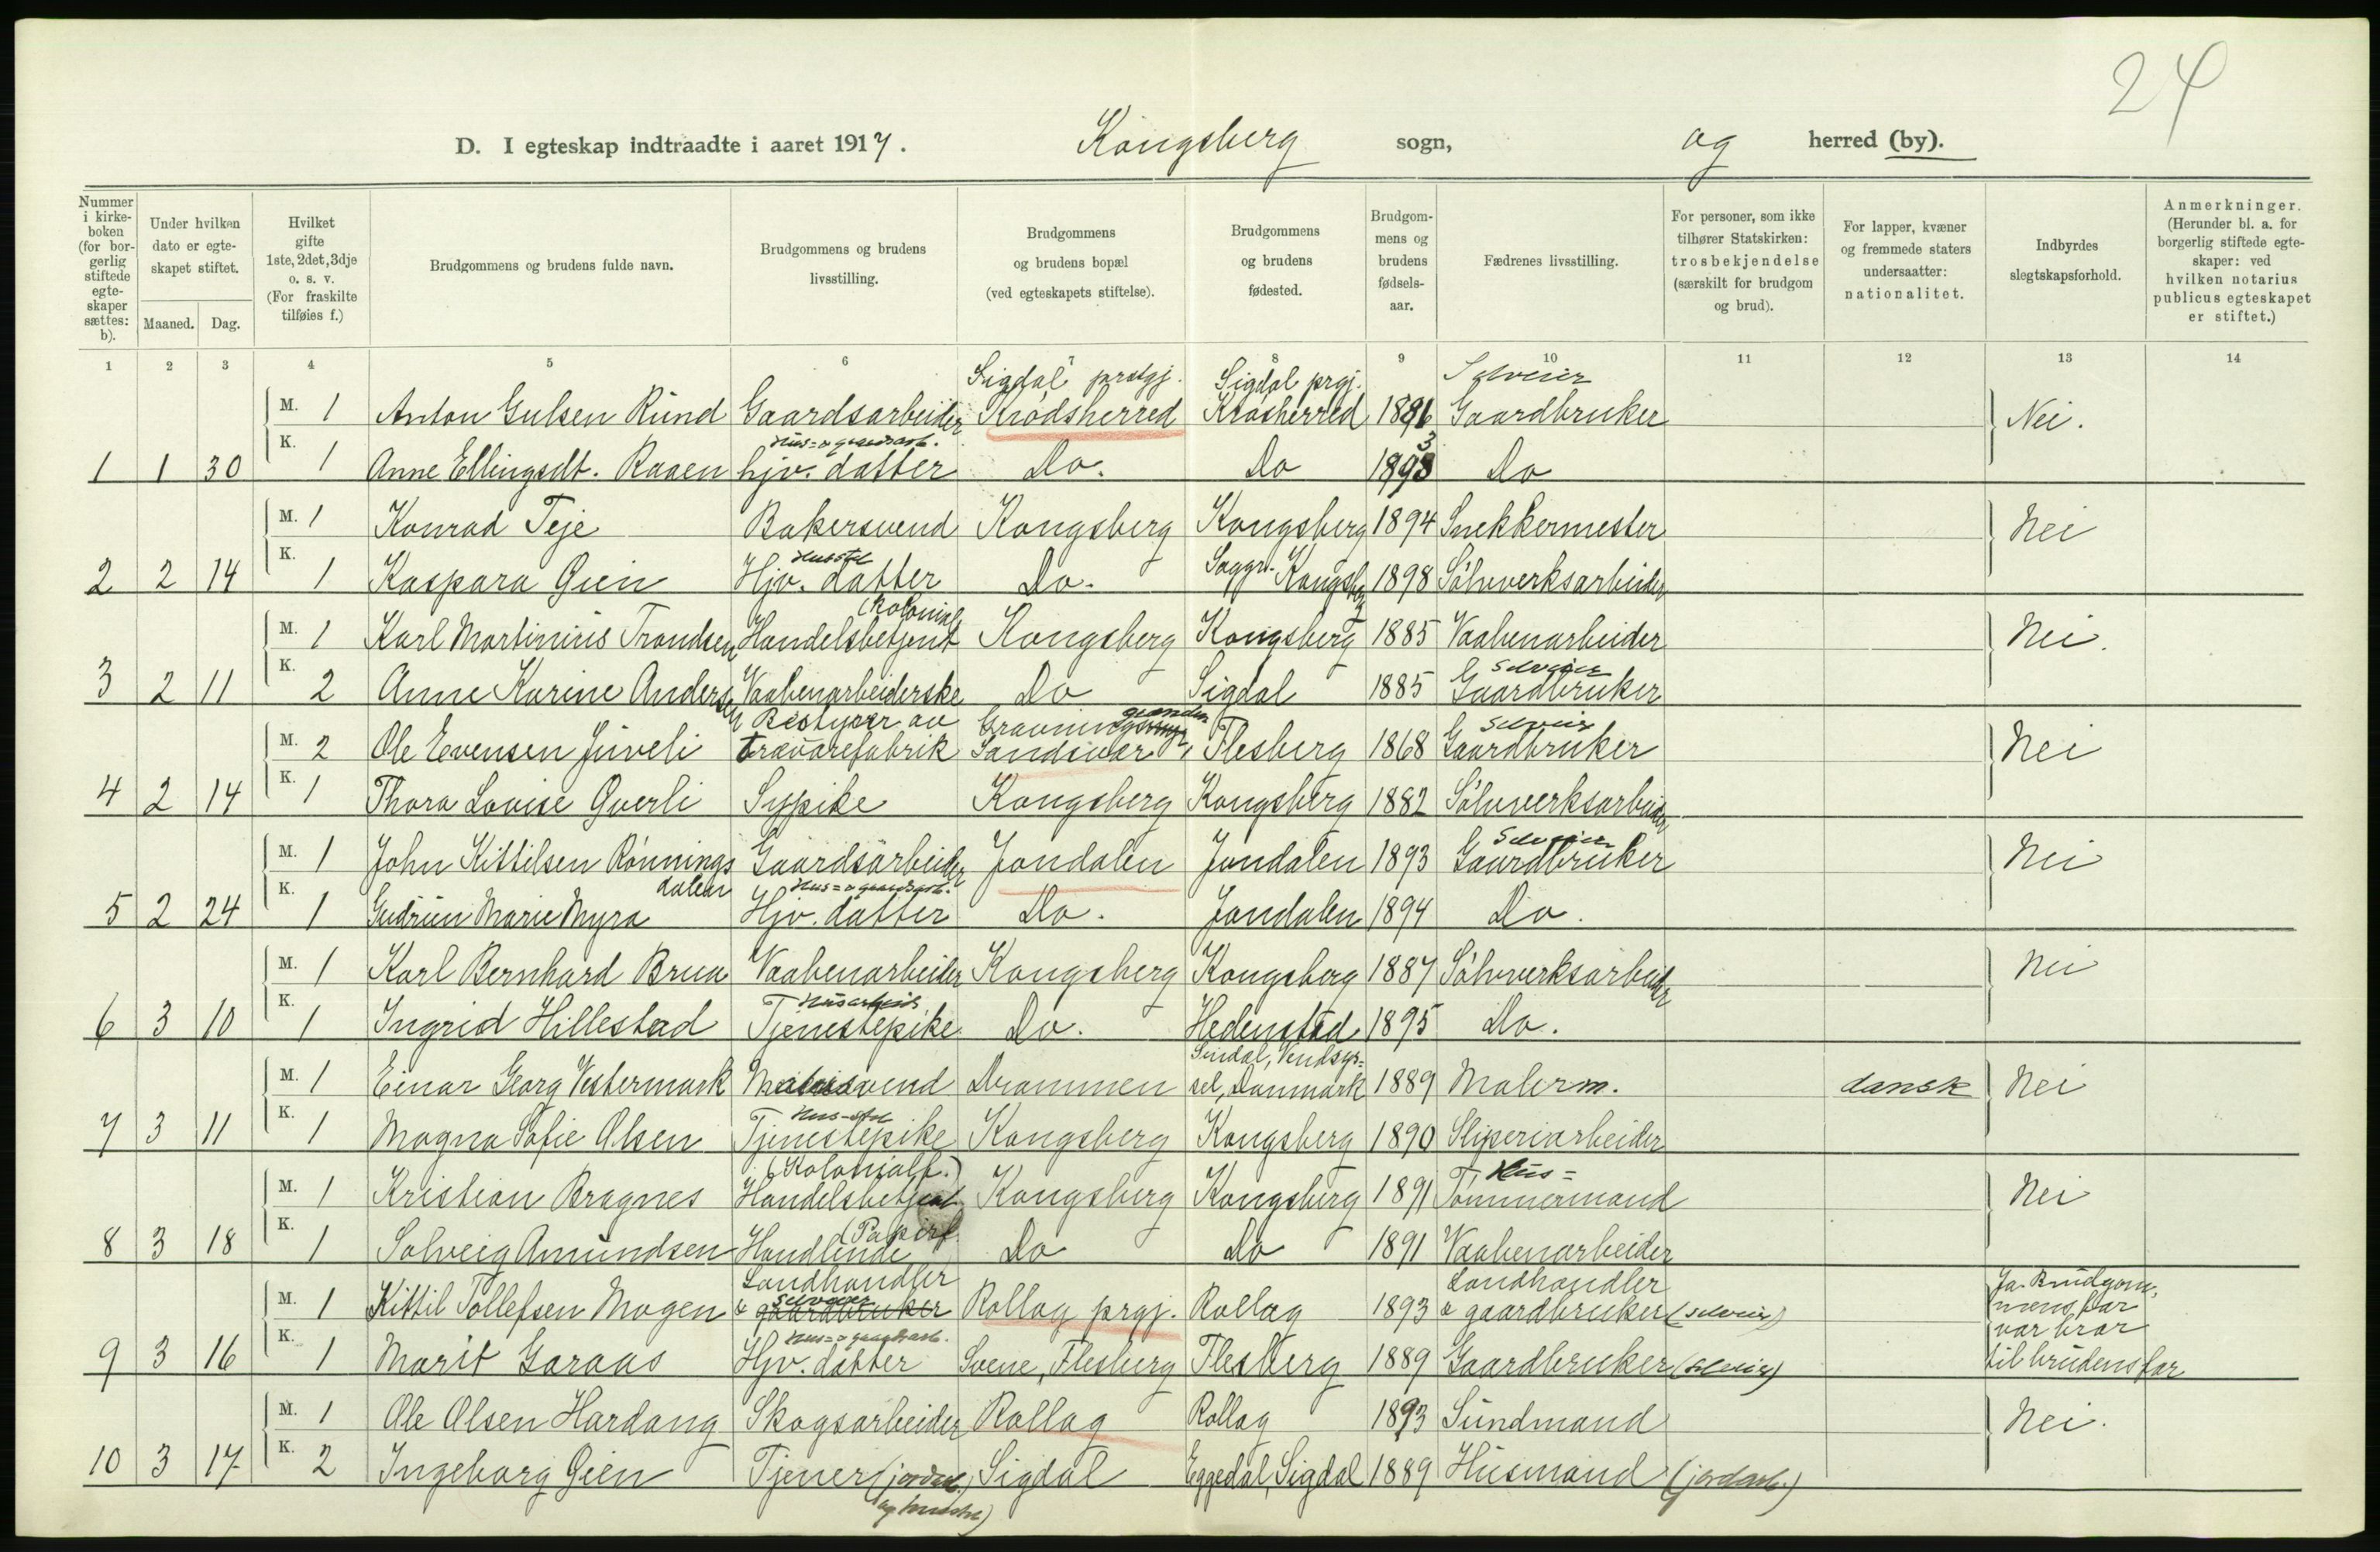 24
D. I egteskap indtraadte i aaret 1917. Kongsberg sogn, og herred (by).
Nummer i kirkeboken (for borgerlig stiftede egteskaper sættes: b).
Under hvilken dato er egteskapet stiftet.
Maaned. Dag.
Hvilket gifte 1ste, 2det, 3dje o. s. v. (For fraskilte tilføies f.)
Brudgommens og brudens fulde navn.
Brudgommens og brudens livsstilling.
Brudgommens og brudens bopæl (ved egteskapets stiftelse).
Brudgommens og brudens fødested.
Brudgommens og brudens fødselsaar.
Fædrenes livsstilling.
For personer, som ikke tilhører Statskirken: trosbekjendelse (særskilt for brudgom og brud).
For lapper, kvæner og fremmede staters undersaatter: nationalitet.
Indbyrdes slegtskapsforhold.
Anmerkninger. (Herunder bl. a. for borgerlig stiftede egteskaper: ved hvilken notarius publicus egteskapet er stiftet.)
1 2 3 4 5 6 7 8 9 10 11 12 13 14
Sigdal prstgj. Sigdal prgj. Selveier
M. 1 Anton Gulsen Rund Gaardsarbeider Krødsherred Krødsherred 1896 Gaardbruker Nei.
Hus= o gaardsarb.
1 1 30 K. 1 Anne Ellingsdt. Raaen hjv. datter Do. Do 1893 Do
M. 1 Konrad Teje Bakersvend Kongsberg Kongsberg 1894 Snekkermester Nei
Husstel
2 2 14 K. 1 Kaspara Gien Hjv. datter Do. Saggr. Kongsberg 1898 Sølvverksarbeider
(Kolonial
M. 1 Karl Martinius Trondsen Handelsbetjent Kongsberg Kongsberg 1885 Vaabenarbeider Nei.
Selveier
3 2 11 K. 2 Anne Karine Andersen Vaabenarbeiderske Do Sigdal 1885 Gaardbruker
Bestyrer av Gravnings Selveier
M. 2 Ole Evensen Juveli trævarefabrik Sandsvær Flesberg 1868 Gaardbruker Nei
4 2 14 K. 1 Thora Lovise Qverli Sypike Kongsberg Kongsberg 1882 Sølvverksarbeider
Selveier
M. 1 John Kittilsen Rønningsdalen Gaardsarbeider Jondalen Jondalen 1893 Gaardbruker Nei
Hus= o gaardsarb.
5 2 24 K. 1 Gudrun Marie Myra Hjv. datter Do. Jondalen 1894 Do.
M. 1 Karl Bernhard Brua Vaabenarbeider Kongsberg Kongsberg 1887 Sølvverksarbeider Nei
Husarbeid
6 3 10 K. 1 Ingrid Hillestad Tjenestepike Do. Hedenstad 1895 Do.
Sindal, Vendsys=
M. 1 Einar Georg Vestermark Malersvend Drammen sel, Danmark 1889 Malerm. dansk Nei
Hus-stel
7 3 11 K. 1 Magna Sofie Olsen Tjenestepike Kongsberg Kongsberg 1890 Sliperiarbeider
(Kolonialf.) Hus=
M. 1 Kristian Bragnes Handelsbetjent Kongsberg Kongsberg 1891 Tømmermand Nei
(Papirf.
8 3 18 K. 1 Solveig Amundsen Handlende Do Do 1891 Vaabenarbeider
Landhandler Landhandler
Selveier
M. 1 Kittil Tollefsen Mogen & gaardbruker Rollag prgj. Rollag 1893 & gaardbruker (selveier) Ja. Brudgommens far var bror til brudens far
Hus= o gaardsarb.
9 3 16 K. 1 Marit Garaas Hjv. datter Svene, Flesberg Flesberg 1889 Gaardbruker (selveier)
M. 1 Ole Olsen Hardang Skogsarbeider Rollag Rollag 1893 Sundmand Nei.
10 3 17 K. 2 Ingeborg Gien Tjener (jordarb. Sigdal Eggedal, Sigdal 1889 Husmand (jordarb.)
og husstel)